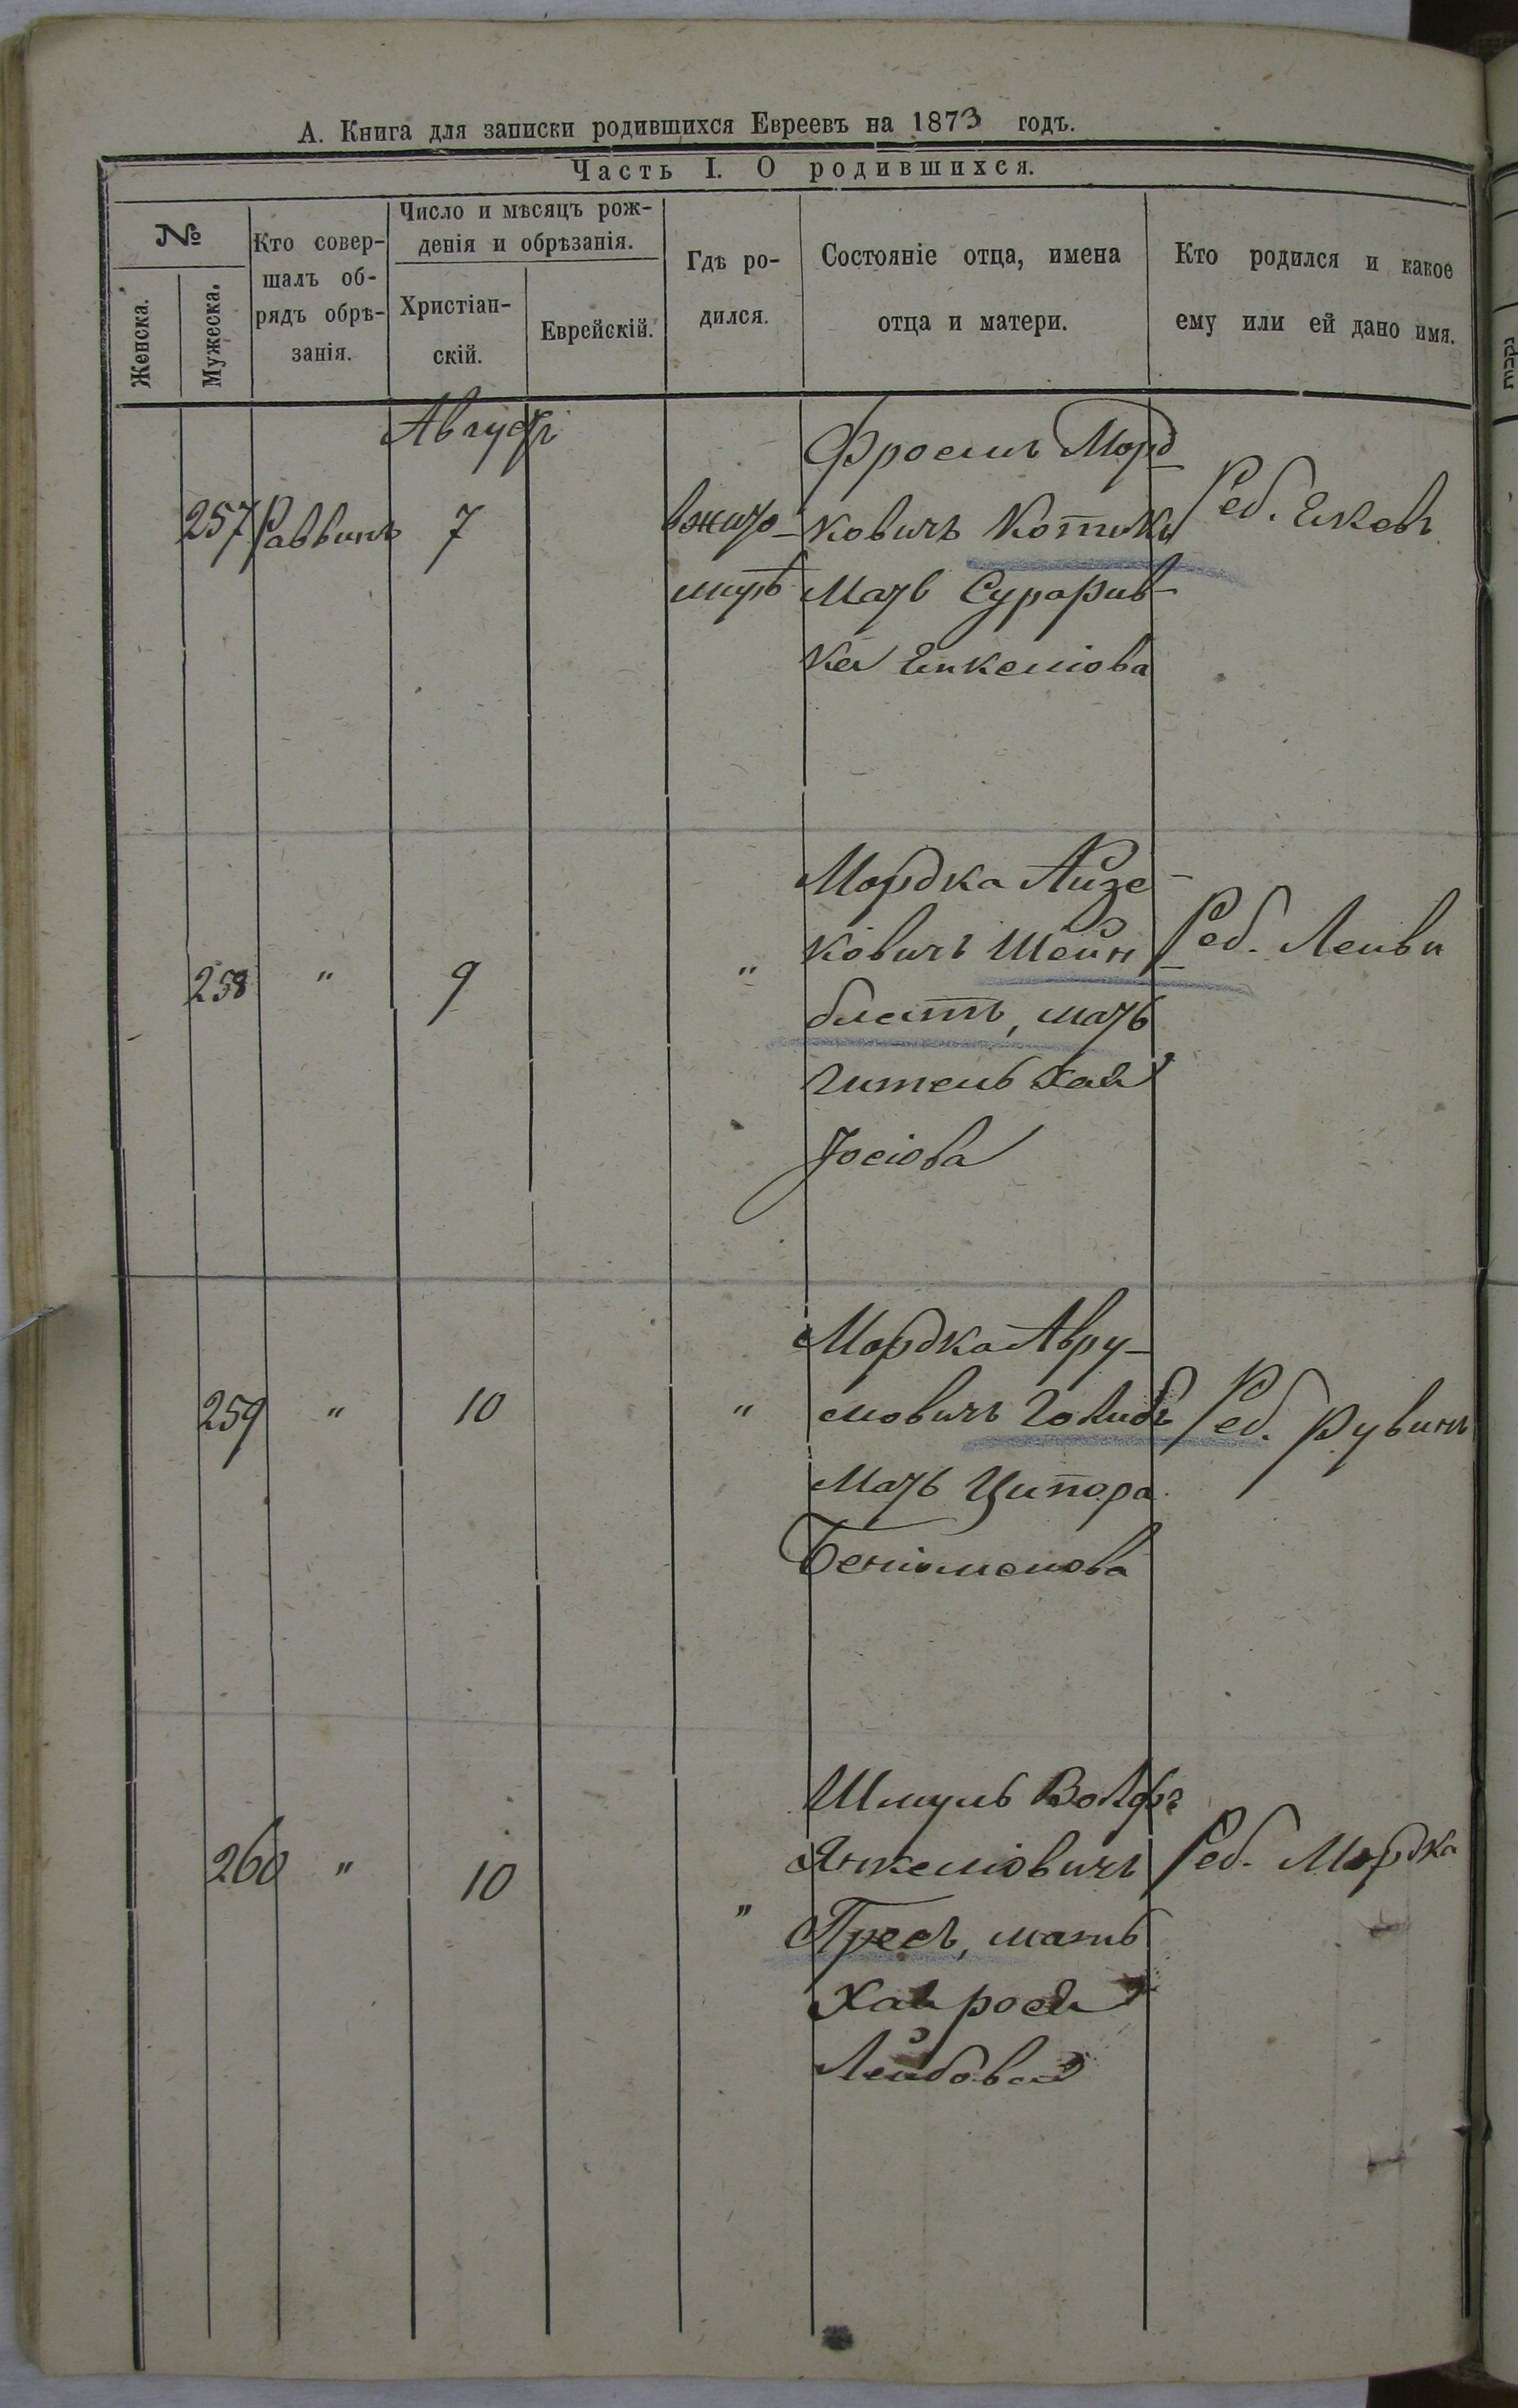 А. Книга для записки родившихся Евреевъ на 1873 годъ.
Часть I. О родившихся.
№
Женска.
Мужеска.
Кто совер-
шалъ об-
рядъ обрѣ-
занія.
Число и мѣсяцъ рож-
денія и обрѣзанія.
Христіан-
скій.
Еврейскій.
Гдѣ ро-
дился.
Состояніе отца, имена
отца и матери.
Кто родился и какое
ему или ей дано имя.
Августъ
257 Раввинъ 7
вжито-
миръ
Фроемъ Морд-
ковичъ Котикъ
Мать Сурарив-
ка Енкеліова
Реб. Екевъ
258 " 9 "
Мордка Айзе-
ковичъ Шейн-
блатъ, мать
Гитель Хая
Іосіова
Реб. Лейви
259 " 10 "
Мордка Авру-
мовичъ Голибъ
Мать Ципора
Беніоменова
Реб. Рувинъ
260 " 10 "
Шмуль Волфъ
Янкеліовичъ
Пресъ, мать
Хая роса
Лейбова
Реб. Мордка
נקבות